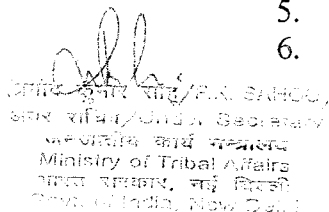 5.
6.
कुमार साहू/P.K. SAHOO
अवर सचिव/Under Secretary
जनजातीय कार्य मन्त्रालय
Ministry of Tribal Affairs
भारत सरकार, नई दिल्ली
Govt. of India, New Delhi